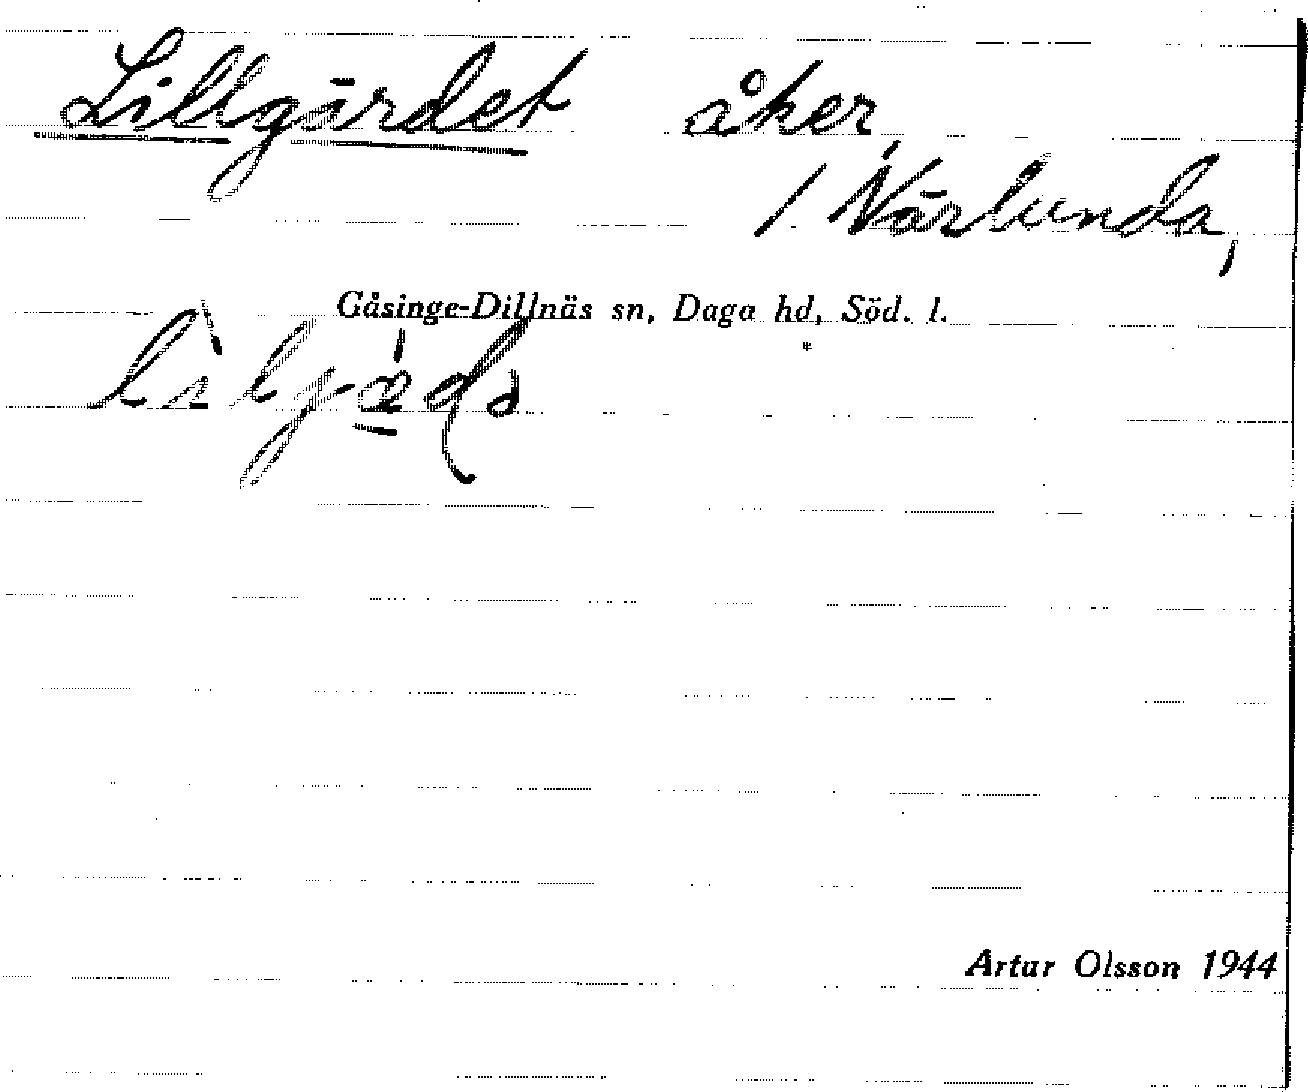 Lillgärdet åker,
/. Närlunda,
Gåsinge-Dillnäs sn, Daga hd, Söd. l.
Artur Olsson 1944